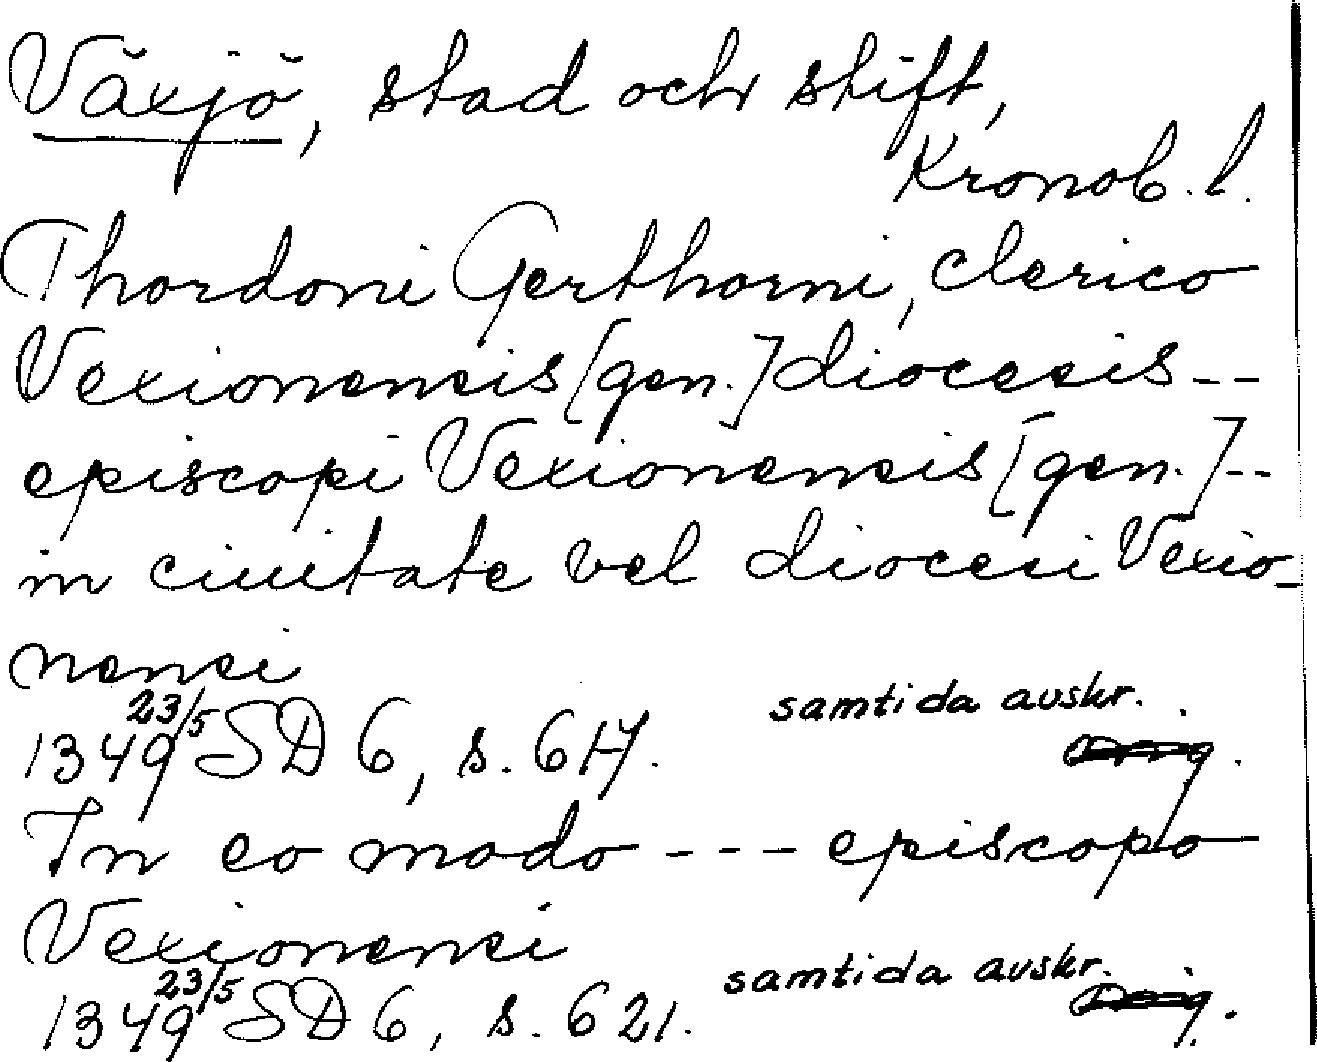 Växjö, stad och stift,
Kronob. l.
Thordoni Gerthorni, clerico
Vexionensis [gen.] diocesis --
episcopi Vexionensis [gen.] --
in ciuitate vel diocesi Vexio-
nensi
1349 23/5 SD 6, s. 617. samtida avskr.
In eo modo --- episcopo
Vexionensi
1349 23/5 SD 6, s. 621. samtida avskr.